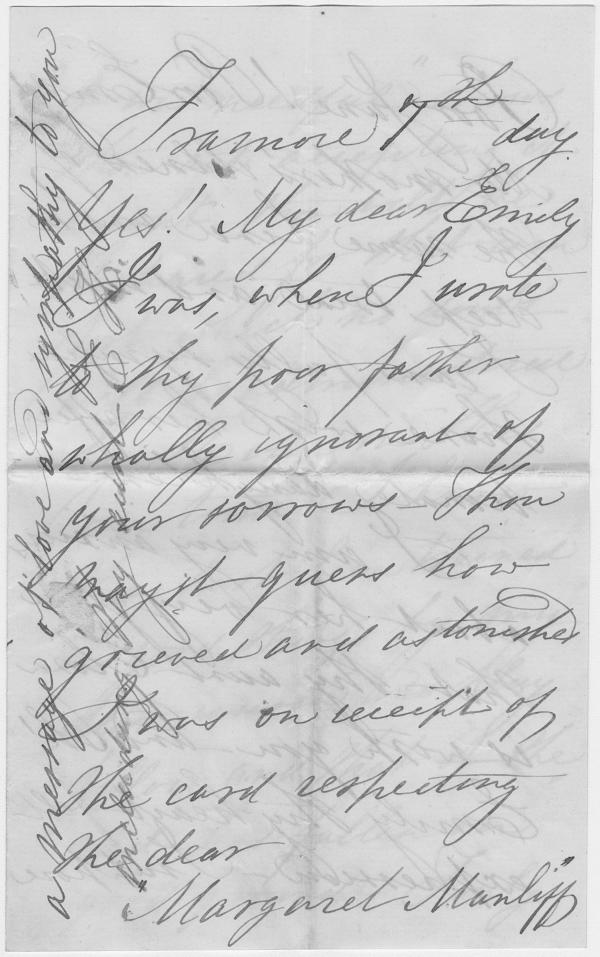 Tramore 7th
day
Yes! My dear Emily
I was, when I wrote
to thy poor father
wholly ignorant of
your sorrows - Thou
mayst guess how
grieved and astonished
I was on receipt of
the card respecting
the dear
"Margaret Manliff"
a message of love and sympathy to you